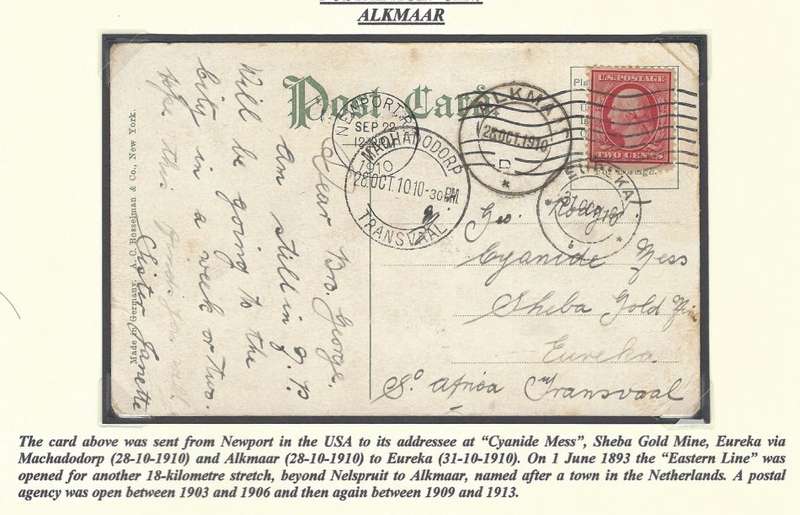 ALKMAAR
Post Card.
U.S. POSTAGE
TWO CENTS
NEWPORT
SEP 22
1910
MACHADODORP
28.OCT.10 10-30PM
TRANSVAAL
ALKMA
28 OCT.1910
EUREKA
Dear Bro. George,
Am still in
Will be going to the
City in a week or two.
type this
Sister Janette
Made in Germany. A. C. Bosselman & Co., New York.
Geo.
Cyanide Mess
Sheba Gold
Eureka
So Africa Transvaal
The card above was sent from Newport in the USA to its addressee at “Cyanide Mess”, Sheba Gold Mine, Eureka via
Machadodorp (28-10-1910) and Alkmaar (28-10-1910) to Eureka (31-10-1910). On 1 June 1893 the “Eastern Line” was
opened for another 18-kilometre stretch, beyond Nelspruit to Alkmaar, named after a town in the Netherlands. A postal
agency was open between 1903 and 1906 and then again between 1909 and 1913.